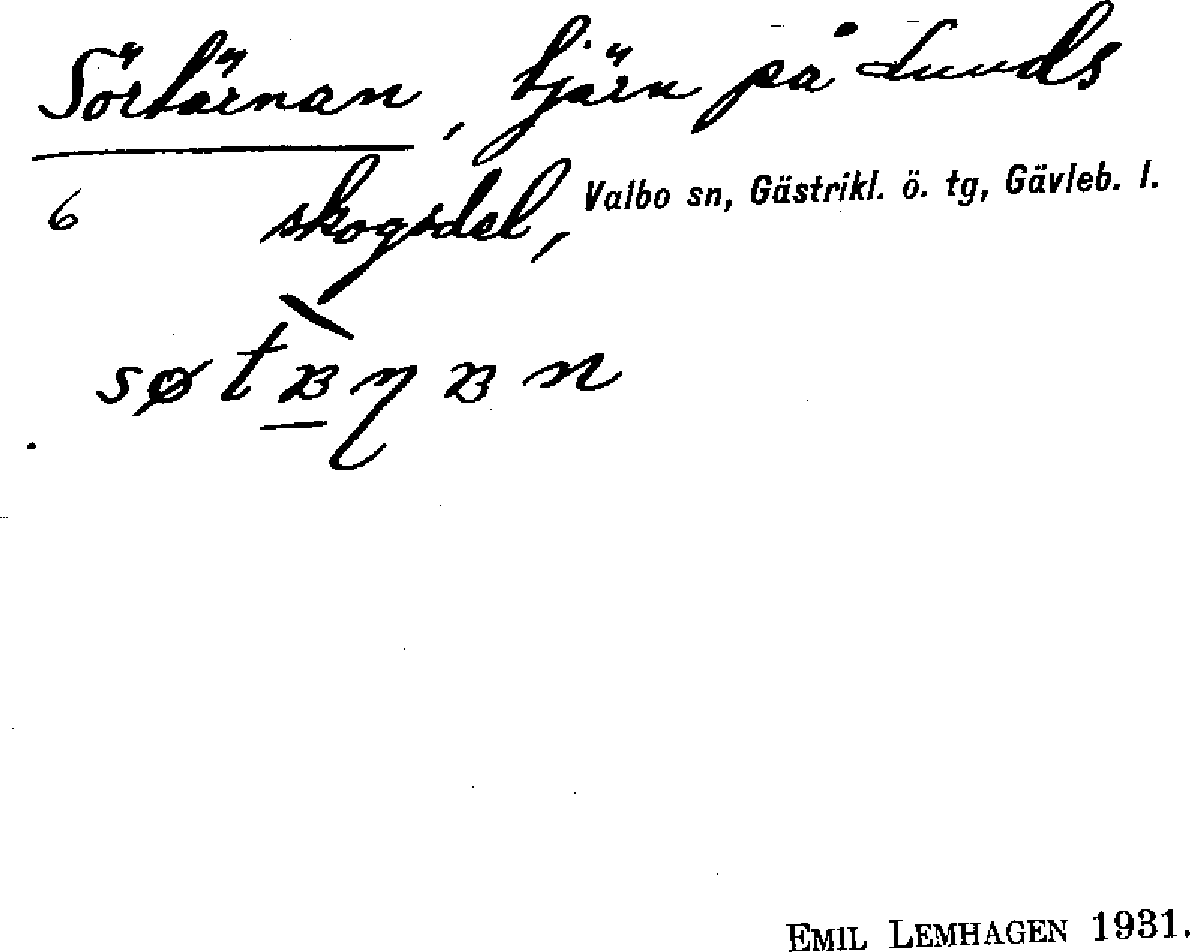 Sörtärnan, tjärn på Lunds
6 skogsdel, Valbo sn, Gästrikl. ö. tg, Gävleb. l.
EMIL LEMHAGEN 1931.